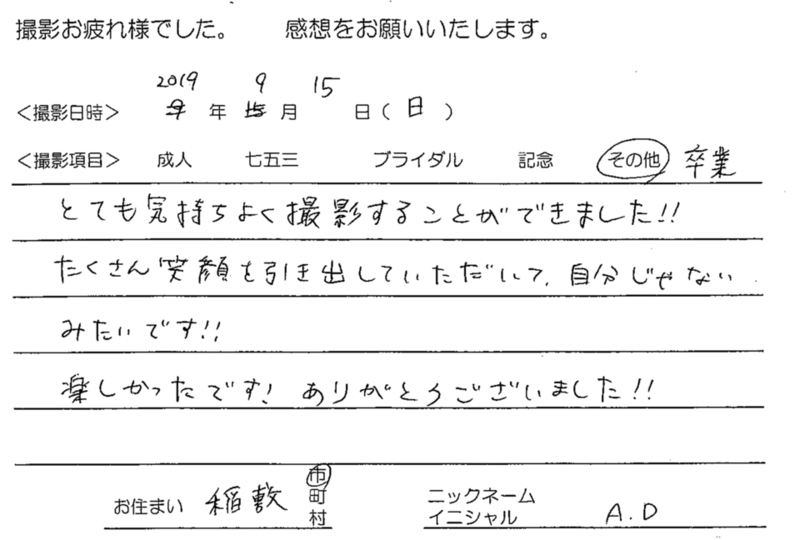 撮影お疲れ様でした。 感想をお願いいたします。
2019 9 15
<撮影日時> 年 月 日(日)
<撮影項目> 成人 七五三 ブライダル 記念 その他 卒業
とても気持ちよく撮影することができました!!
たくさん笑顔を引き出していただいて、自分じゃない
みたいです!!
楽しかったです! ありがとうございました!!
お住まい 稲敷 市
町
村
ニックネーム
イニシャル A.D